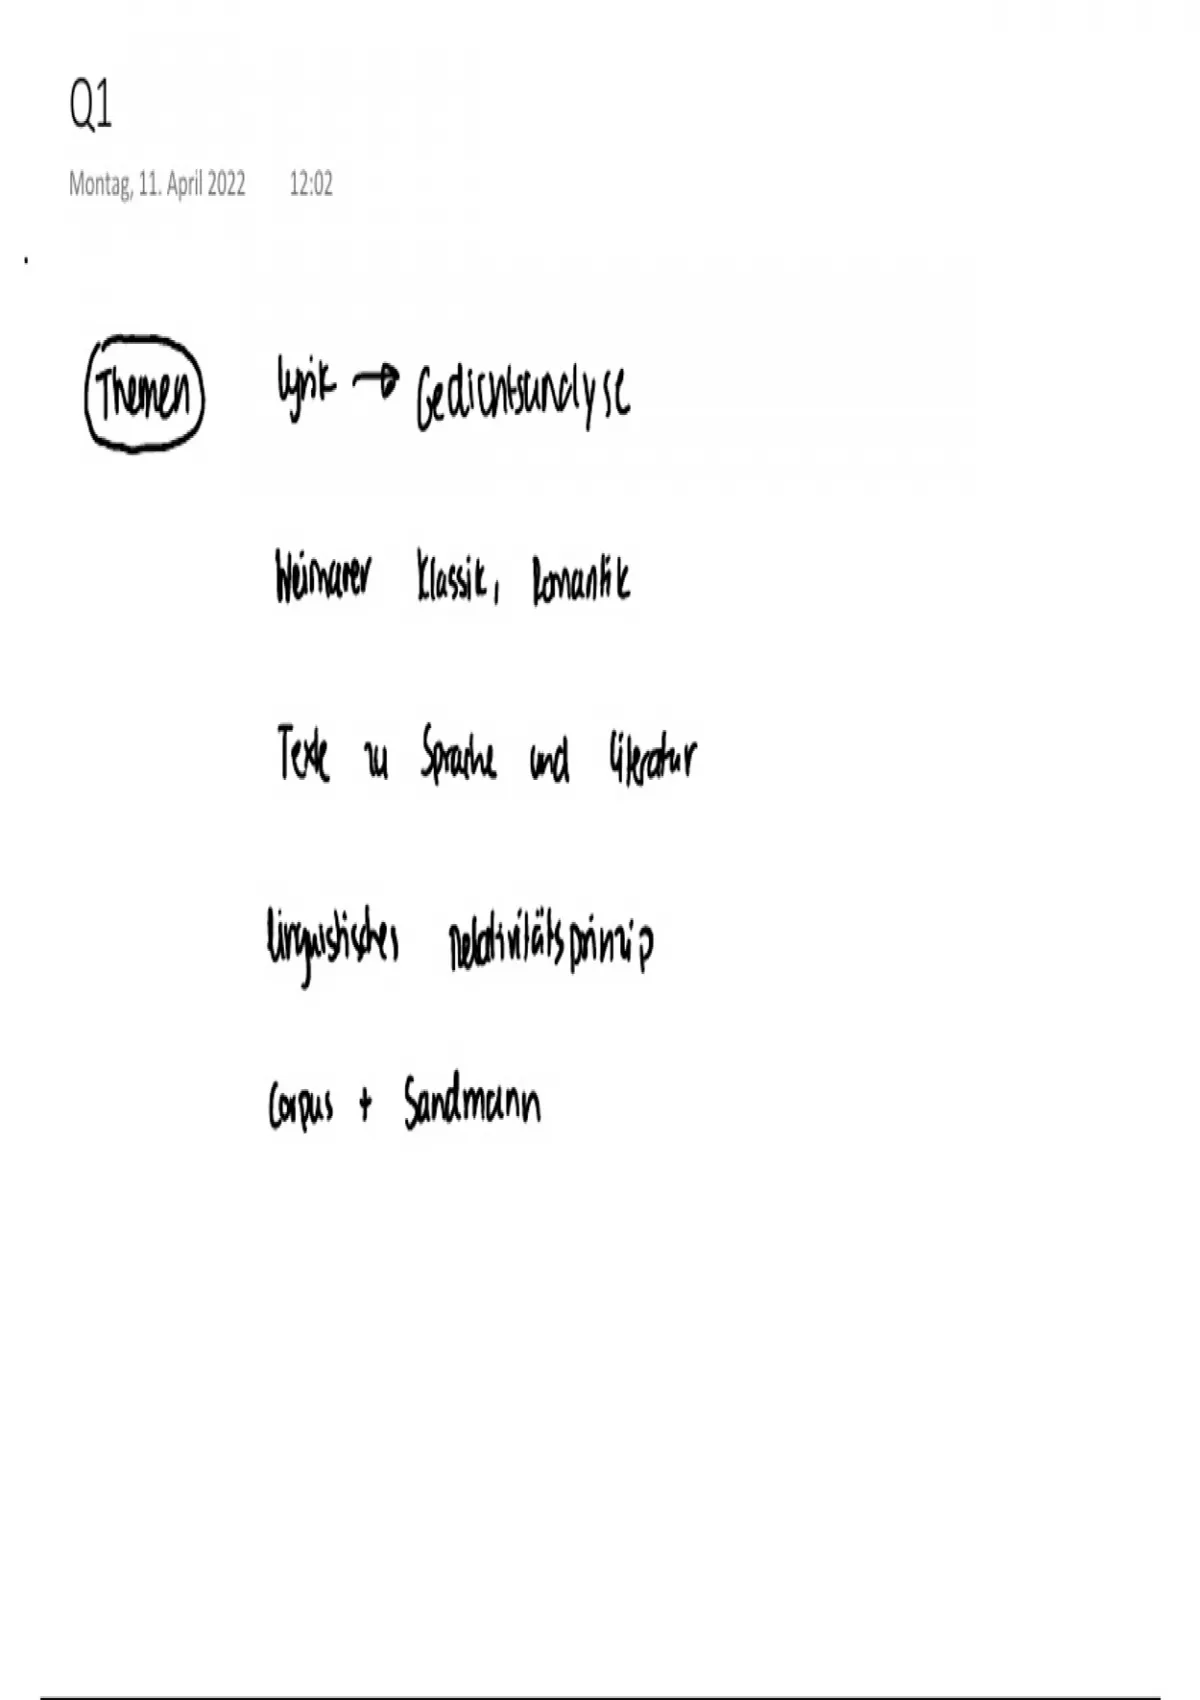 Q1
Montag, 11. April 2022 12:02
Themen Lyrik → Gedichtsanalyse
Weimarer Klassik, Romantik
Texte zu Sprache und Literatur
Linguistisches Relativitätsprinzip
Corpus + Sandmann